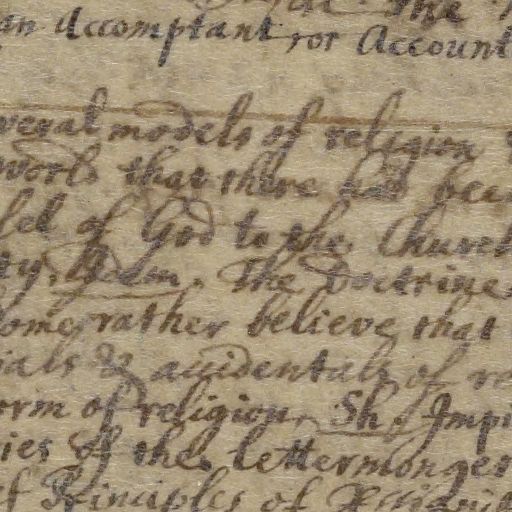 an Accomptant, or Account
veral models of religion
world that there had bee
sel of God to the Church
ty. The doctrine
some rather believe that
ials & accidentals of re
orm of religion. Sh. Impr
ies of the lettermonger
of Principles of